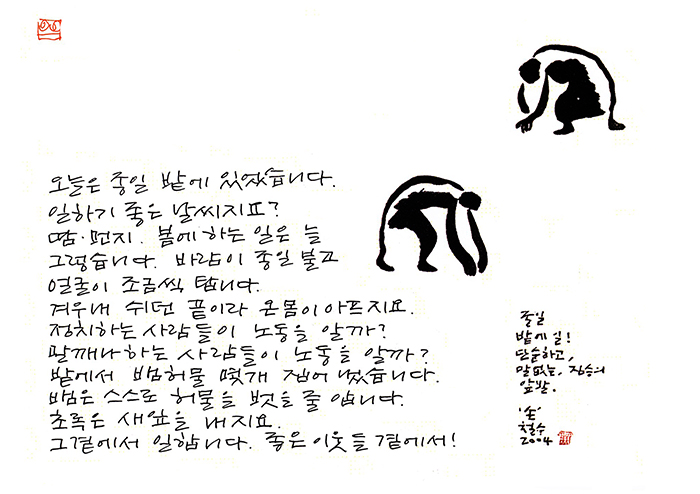 오늘은 종일 밭에 있었습니다.
일하기 좋은 날씨지요?
땀·먼지. 봄에 하는 일은 늘
그렇습니다. 바람이 종일 불고
얼굴이 조금씩 탑니다.
겨우내 쉬던 끝이라 온몸이 아프지요.
정치하는 사람들이 노동을 알까?
말깨나하는 사람들이 노동을 알까?
밭에서 뱀허물 몇개 집어 냈습니다.
뱀은 스스로 허물을 벗을 줄 압니다.
초록은 새잎을 내지요.
그곁에서 일합니다. 좋은 이웃들 곁에서!
종일
밭에 일!
단순하고,
말없는, 짐승의
앞발.
'손'
철수
2004